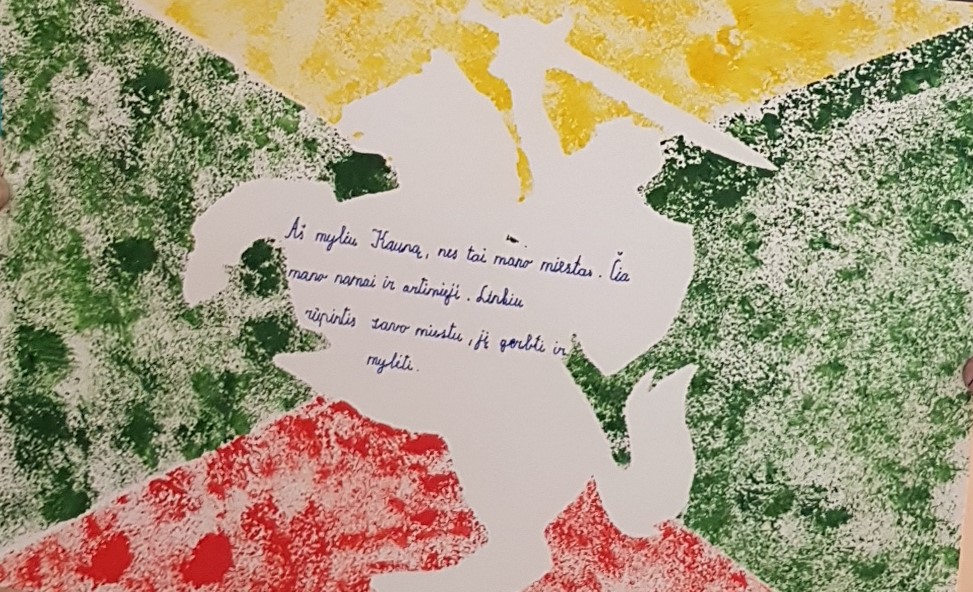 Aš myliu Kauną, nes tai mano miestas. Čia
mano namai ir artimieji. Linkiu
rūpintis savo miestu, jį gerbti ir
mylėti.